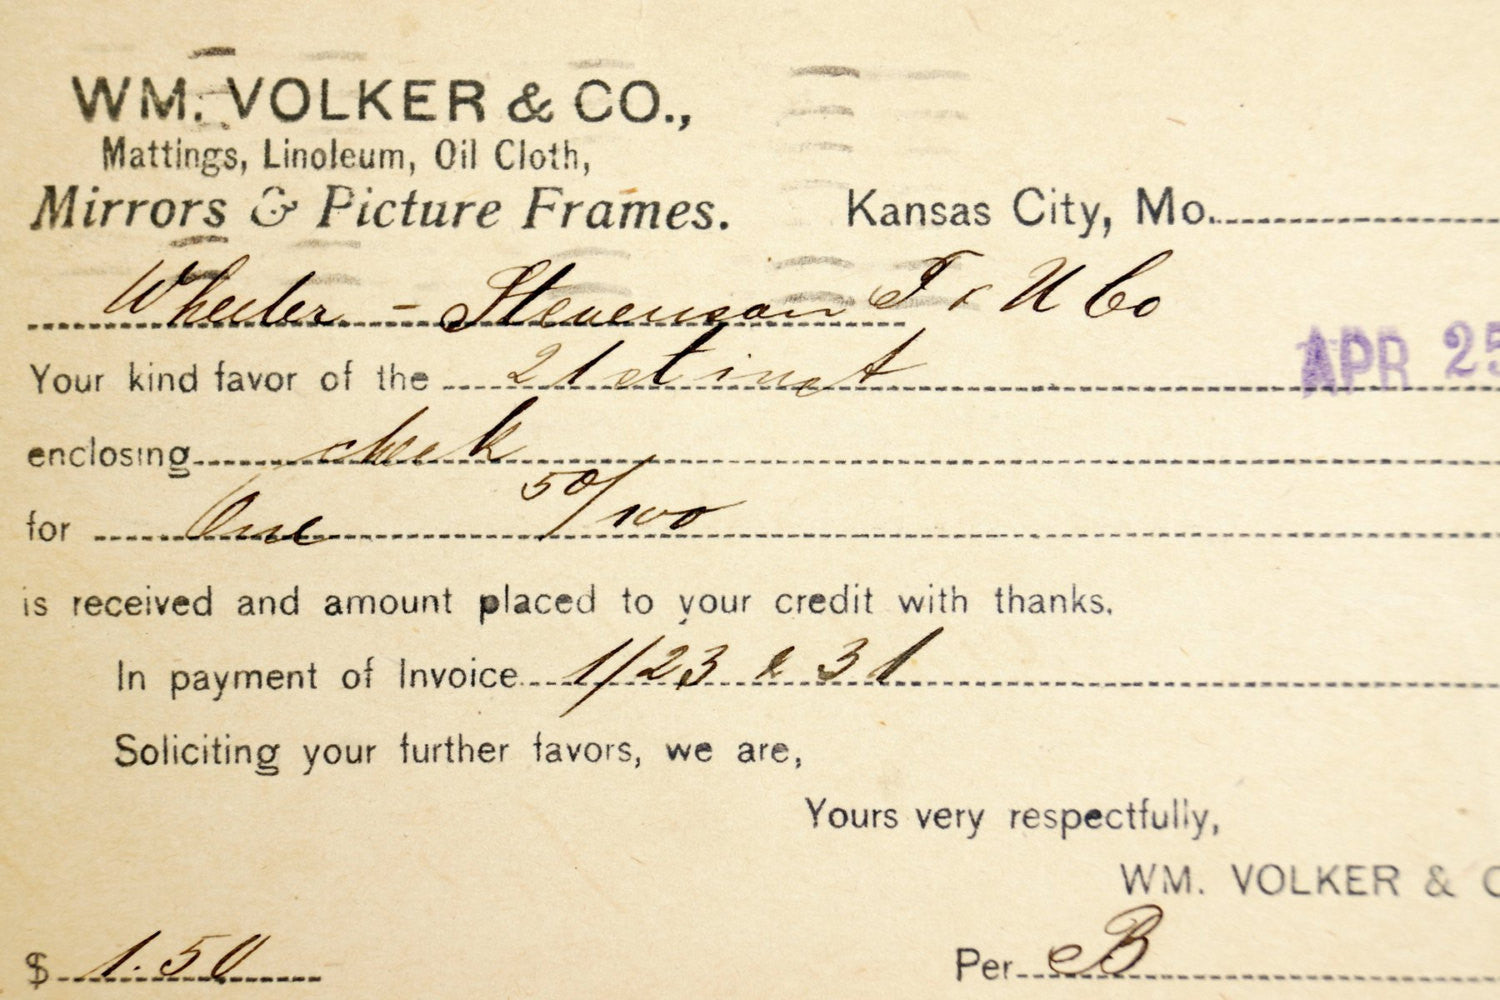 WM. VOLKER & CO.,
Mattings, Linoleum, Oil Cloth,
Mirrors & Picture Frames.
Kansas City, Mo.
Wheeler - Stevenson F & U Co
APR 25
Your kind favor of the 21st inst
enclosing check
for One 50/100
is received and amount placed to your credit with thanks.
In payment of Invoice 1/23 & 31
Soliciting your further favors, we are,
Yours very respectfully,
WM. VOLKER & C
$ 1.50
Per B